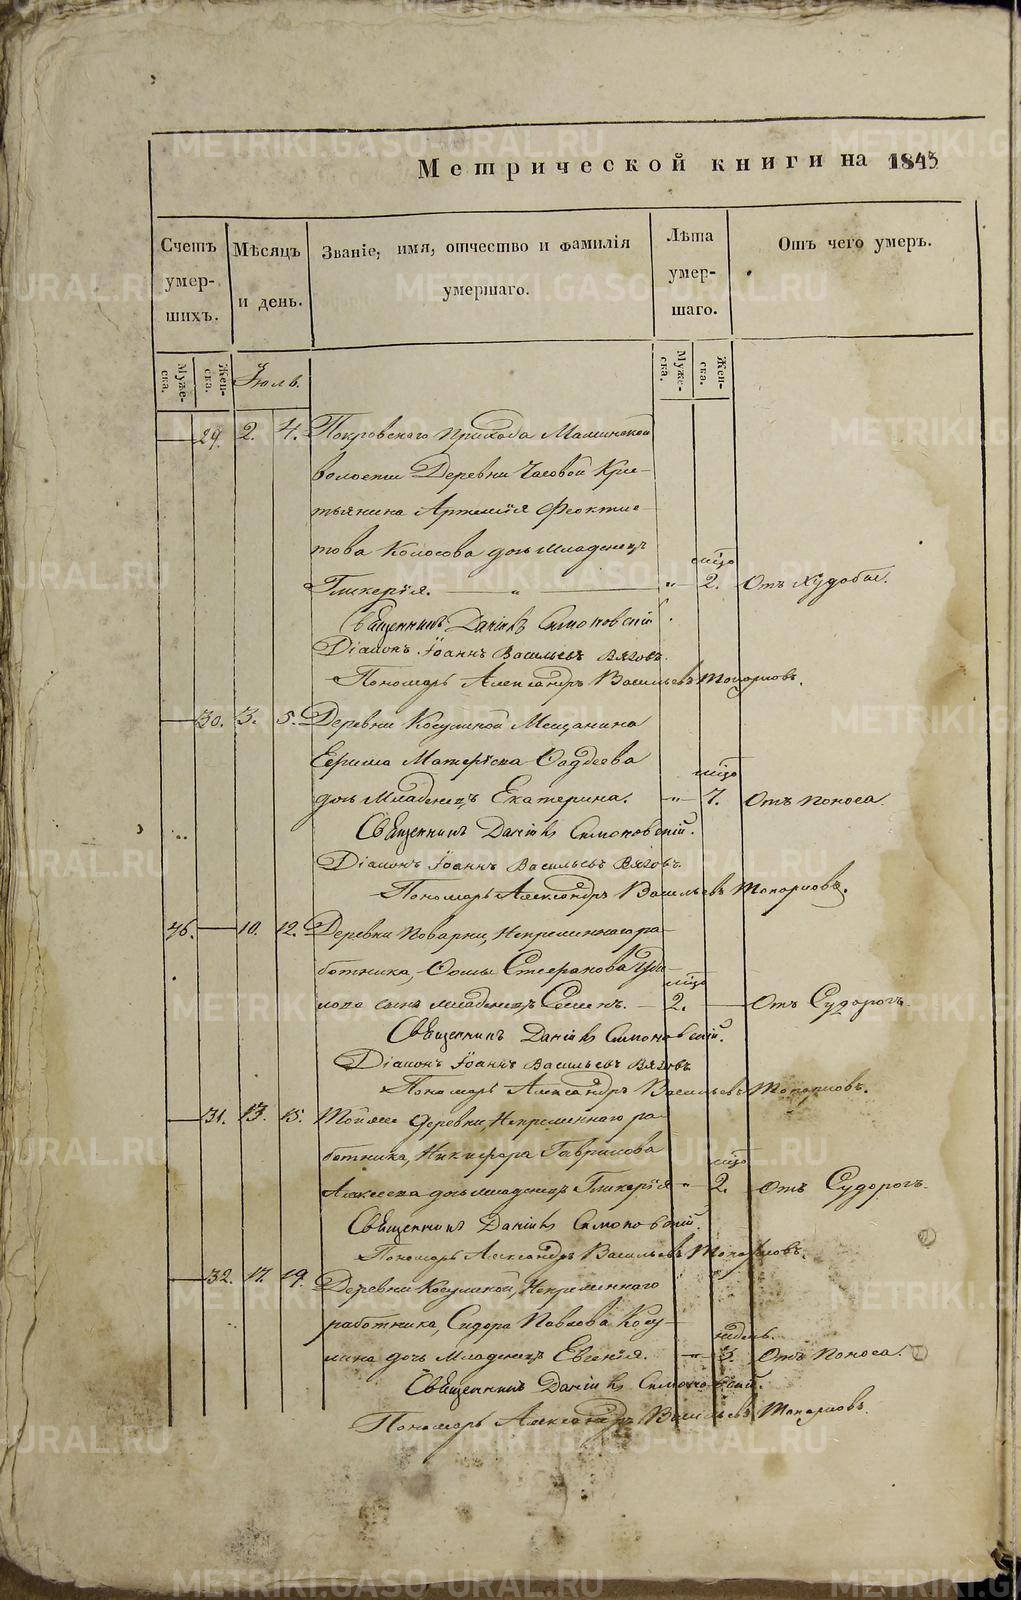 Метрической книги на 1843
Счетъ умер-шихъ.
Мѣсяцъ и день.
Званіе, имя, отчество и фамилія умершаго.
Лѣта умер-шаго.
Отъ чего умеръ.
Муже-ска.
Жен-ска.
Іюль.
Муже-ска.
Жен-ска.
29. 2. 4. Покровскаго прихода Маминской
волости Деревни Часовой Кре-
стьянина Артемія Феоктис-
това Колосова дочь младенецъ
мѣс
Гликерія. " " 2. Отъ Худобы.
Священникъ Даніилъ Симоновскій
Діаконъ Іоаннъ Васильевъ Вяговъ.
Пономарь Александръ Васильевъ Топорковъ.
30. 3. 5. Деревни Косулиной Мещанина
Ефима Ѳаддеева
мѣс
дочь младенецъ Екатерина. " 7. Отъ поноса.
Священникъ Даніилъ Симоновскій.
Діаконъ Іоаннъ Васильевъ Вяговъ.
Пономарь Александръ Васильевъ Топорковъ.
46. 10. 12. Деревни Поварни, Непременнаго ра-
ботника, Ѳомы Стефанова
мѣс
сынъ младенецъ 2. Отъ Судорогъ
Священникъ Даніилъ Симоновскій.
Діаконъ Іоаннъ Васильевъ Вяговъ
Пономарь Александръ Васильевъ Топорковъ.
31. 13. 15. Тойже деревни, Непременнаго ра-
ботника, Никифора Гаврилова
мѣс
Алексеева дочь младенецъ Гликерія " 2. Отъ Судорогъ.
Священникъ Даніилъ Симоновскій.
Пономарь Александръ Васильевъ Топорковъ.
32. 17. 19. Деревни Косулиной, Непременнаго
работника, Сидора Павлова Косу-
недель.
лина дочь младенецъ Евгенія. " 3. Отъ поноса.
Священникъ Даніилъ Симоновскій.
Пономарь Александръ Васильевъ Топорковъ.
METRIKI.GASO-URAL.RU